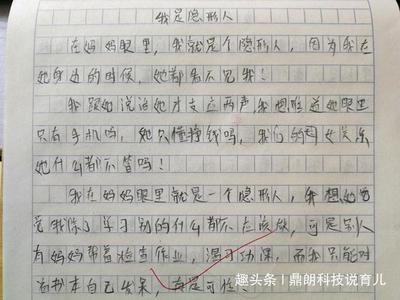 我是隐形人
在妈妈眼里,我就是个隐形人,因为我在
她身边的时候,她都看不见我!
我跟她说话她才支应两声,我想难道她眼里
只有手机吗,她只懂挣钱吗,我们的母女关系
她什么都不管吗!
我在妈妈眼里就是一个隐形人,我想她总
觉我除了学习别的什么都不应该做,可是别人
有妈妈帮着检查作业,温习功课,而我只能对
着书本自己发呆,有是可怜。
趣头条|鼎朗科技说育儿